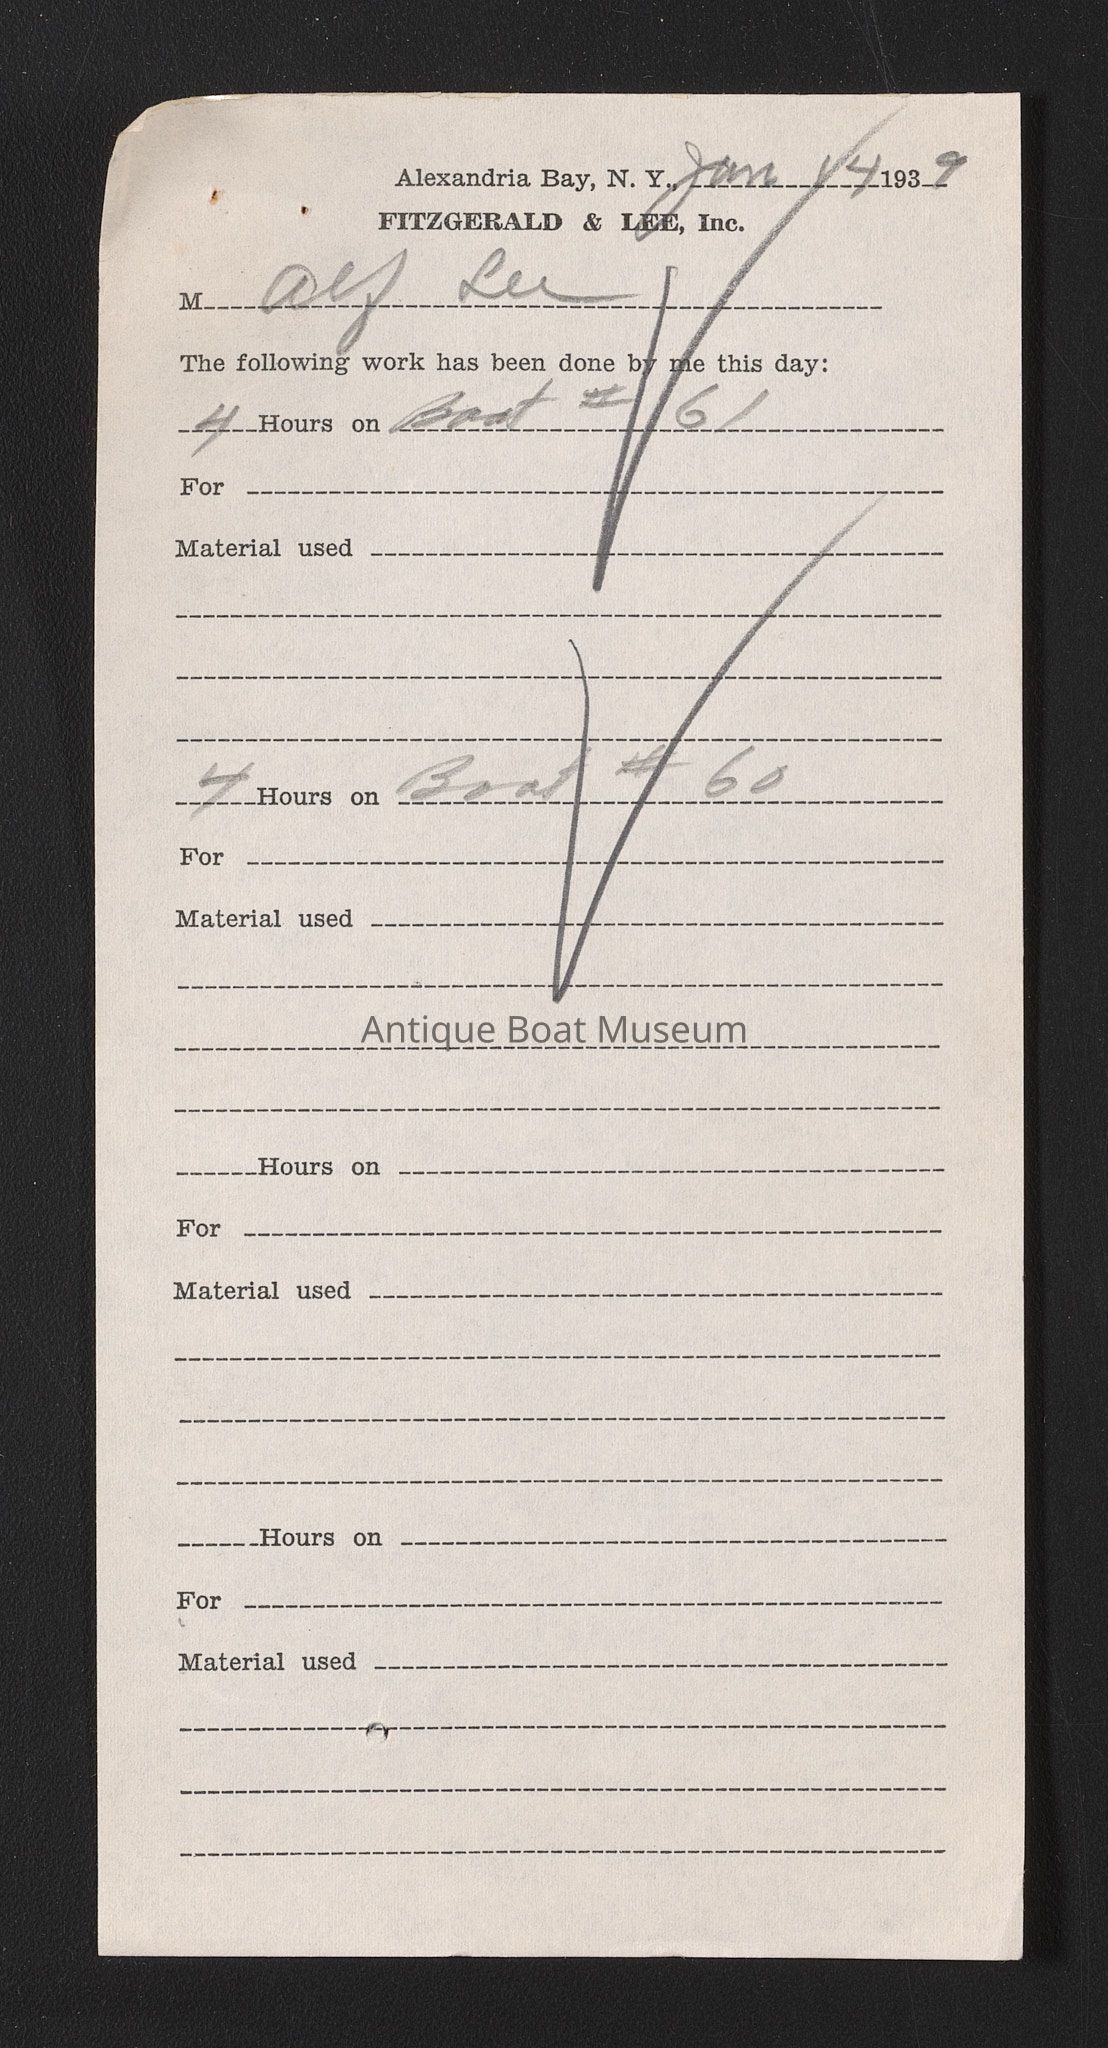 Alexandria Bay, N. Y., Jan 14 1939
FITZGERALD & LEE, Inc.
M Alf Lee
The following work has been done by me this day:
4 Hours on Boat # 61
For
Material used
4 Hours on Boat # 60
For
Material used
Antique Boat Museum
Hours on
For
Material used
Hours on
For
Material used